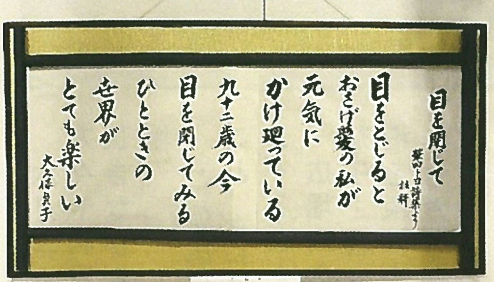 目を閉じて
トヨ詩集より
目をとじると
おさげ髪の私が
元気に
かけ廻っている
九十二歳の今
目を閉じてみる
ひとときの
世界が
とても楽しい
大久保